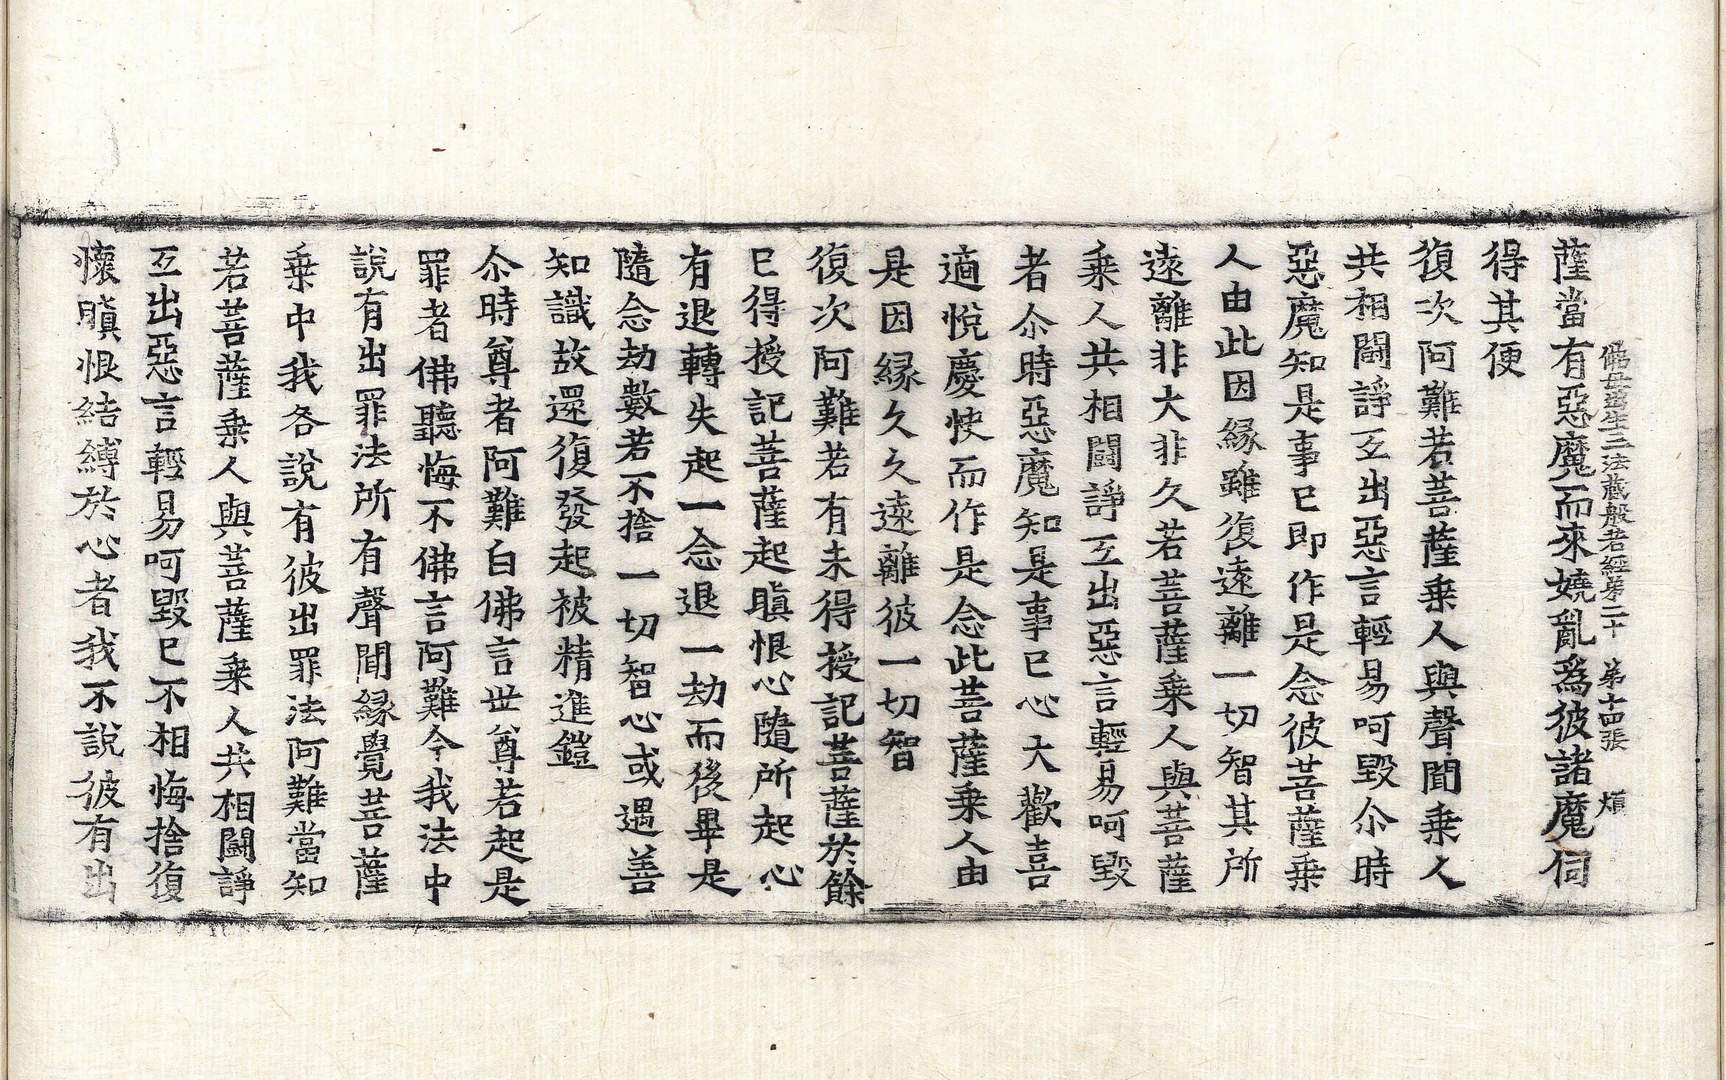 佛母出生三法藏般若經第二十 第十四張 煩
薩當有惡魔而來嬈亂為彼諸魔伺
得其便
復次阿難若菩薩乘人與聲聞乘人
共相鬪諍互出惡言輕易呵毀尒時
惡魔知是事已即作是念彼菩薩乘
人由此因緣雖復遠離一切智其所
遠離非大非久若菩薩乘人與菩薩
乘人共相鬪諍互出惡言輕易呵毀
者尒時惡魔知是事已心大歡喜
適悅慶快而作是念此菩薩乘人由
是因緣久久遠離彼一切智
復次阿難若有未得授記菩薩於餘
已得授記菩薩起瞋恨心隨所起心
有退轉失起一念退一劫而後畢是
隨念劫數若不捨一切智心或遇善
知識故還復發起被精進鎧
尒時尊者阿難白佛言世尊若起是
罪者佛聽悔不佛言阿難今我法中
說有出罪法所有聲聞緣覺菩薩
乘中我各說有彼出罪法阿難當知
若菩薩乘人與菩薩乘人共相鬪諍
互出惡言輕易呵毀已不相悔捨復
懷瞋恨結縛於心者我不說彼有出